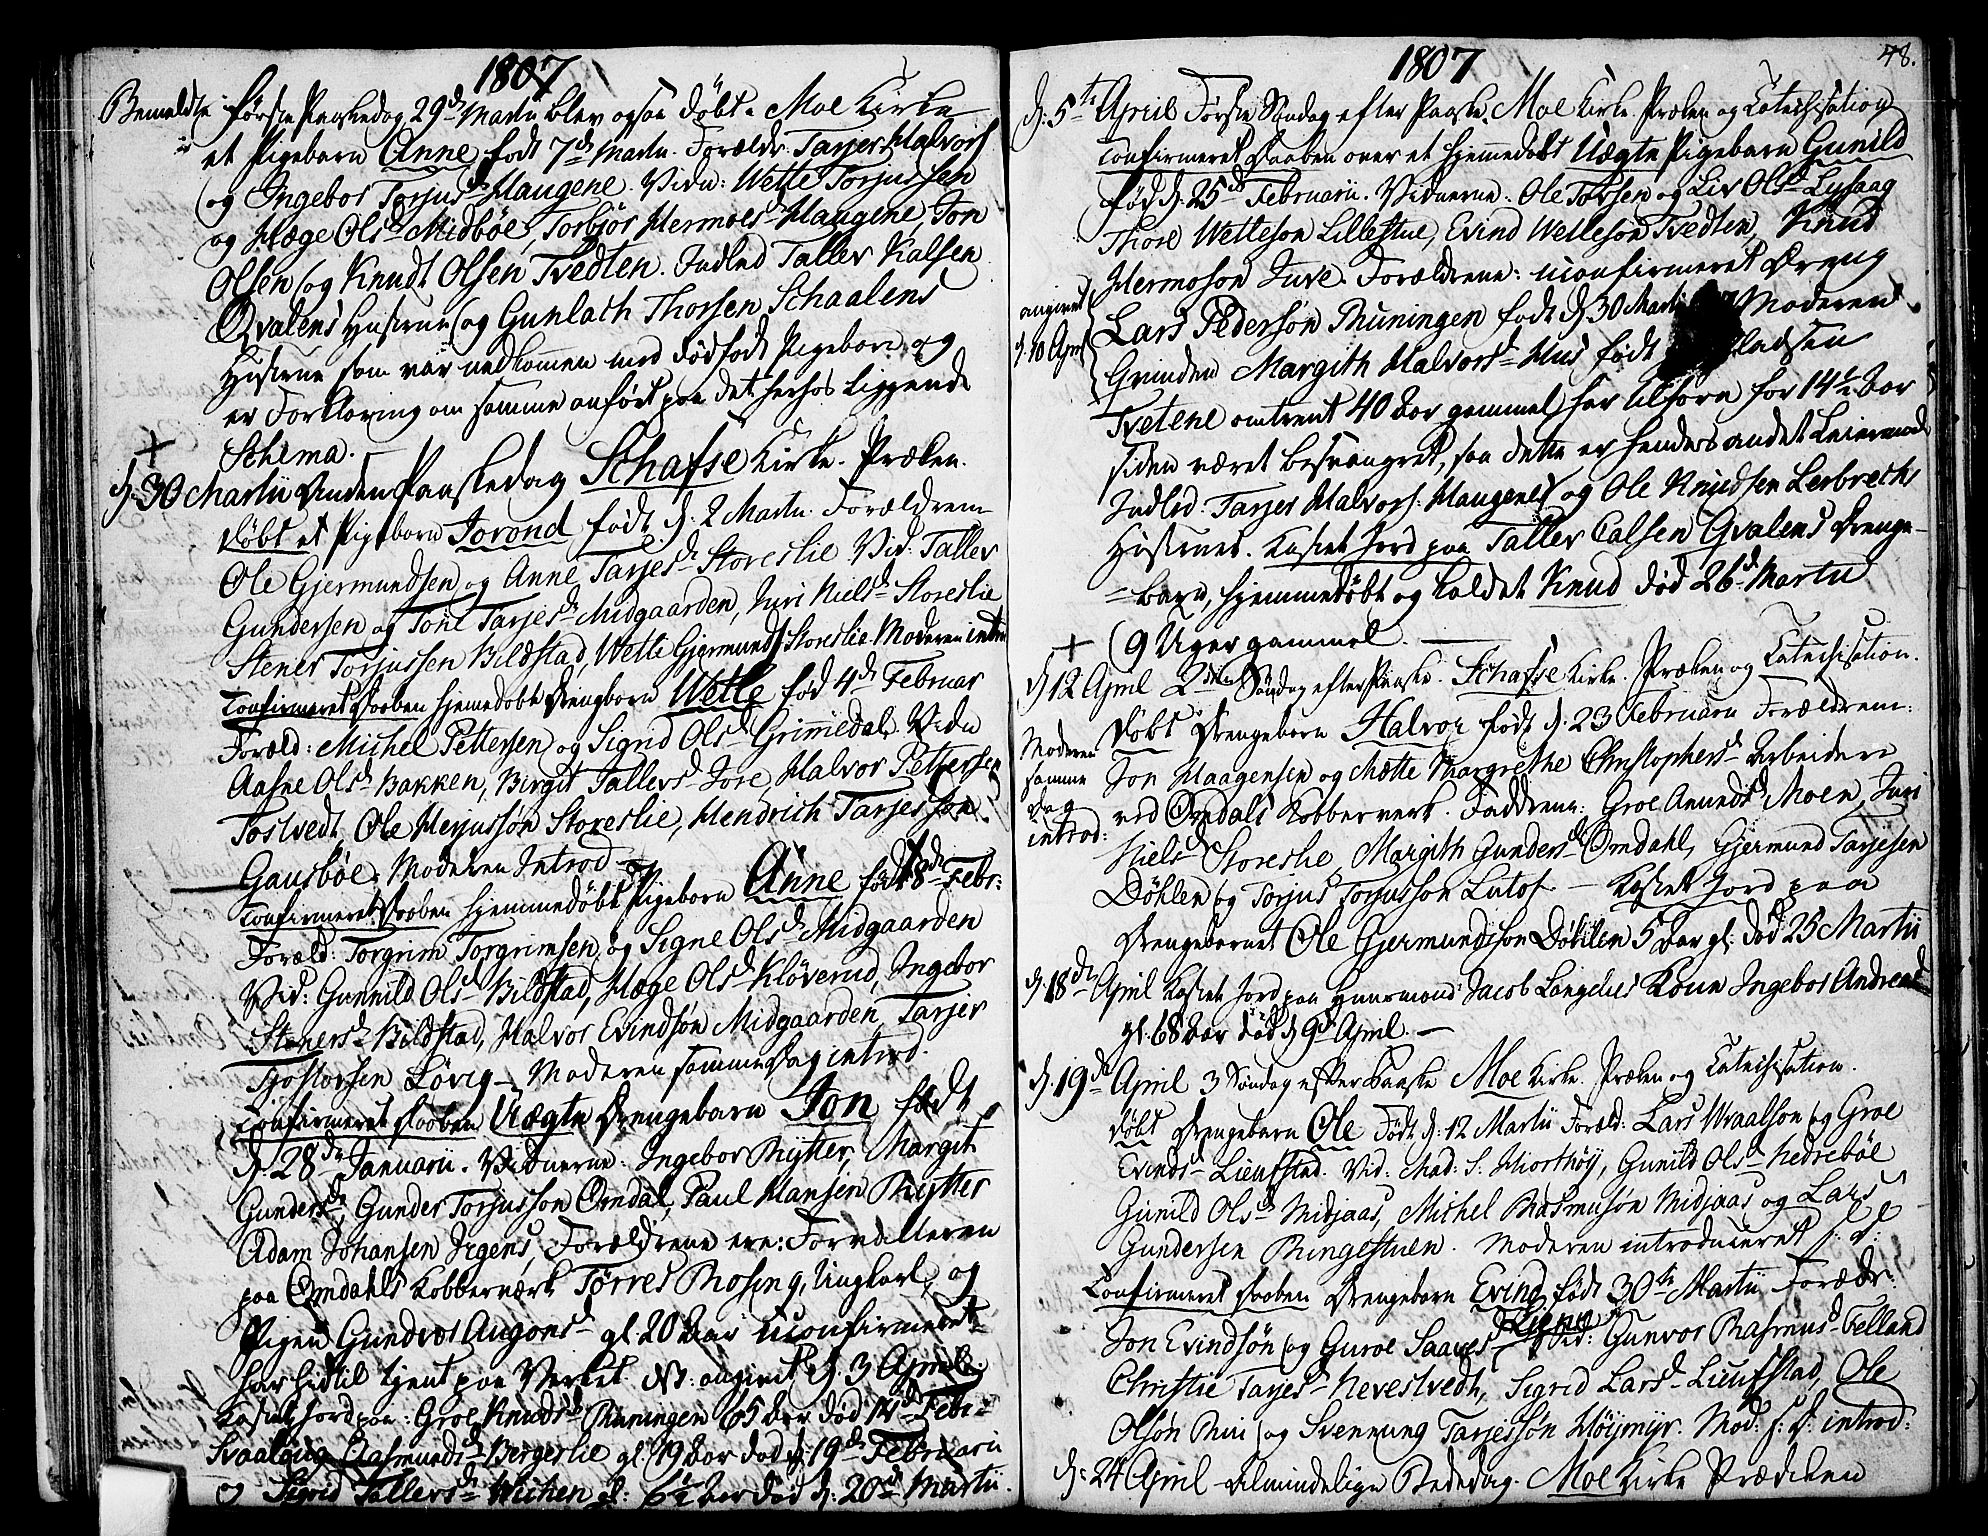 1807
Bemeldte første Paaskedag 29de Martii blev ogsaa døbt i Moe Kirke
et Pigebarn Anne født 7de Martii. Forældr: Tarjer Halvors:
og Ingebor Torjusd: Haugene. Vidn: Wetle Torjussen
og Hæge Olsd: Midbøe, Torbjør Hermoesd: Haugene, Jon
Olsen og Knudt Olsen Tvedten. Indled Tallev Kalsen
Qvalens Hustrue og Gunlach Thorsen Schaalens
Hustrue som var nedkommen med dødfødt Pigebarn og
er Forklaring om samme anført paa det herhos liggende
Schema.
d: 30 Martii Anden Paaskedag Schafse Kirke. Præken.
døbt et Pigebarn Jorond født d. 2 Martii. Forældrene
Ole Gjermundsen og Anne Tarjesd: Storeslie Vid: Tallev
Gundersen og Tone Tarjesd: Midgaarden, Juri Nielsd: Storeslie
Stener Torjussen Bildstad, Wetle Gjermunds: Storeslie. Moderen introd:
Confirmeret Daaben hjemmedøbt Drengebarn Wetle fød 4de Februar
Foræld: Michel Pettersen og Sigrid Olsd: Grimedal. Vidn
Aasne Olsd: Bakken, Birgit Tallevsd: Jore, Halvor Pettersen
Tostvedt, Ole Herjusson Storeslie, Hendrich Tarjesson
Gausbøe. Moderen Introd
Confirmeret Daaben hjemmedøbt Pigebarn Anne født 8de Febr:
Foræld: Torgrim Torgrimsen og Signe Olsd: Midgaarden
Vid: Gunnild Olsd: Bildstad, Hæge Olsd: Kløverud, Ingebor
Stenersd: Bildstad, Halvor Evindsøn Midgaarden, Tarjer
Tjostovsen Løvig. Moderen samme Dag introd.
Confirmeret Daaben Uægte Drengebarn Jon født
d. 28de Januarii. Vidnerne: Ingebor Rytter, Margit
Gundersd: Gunder Torjusson Omdal, Paul Hansen Rytter
Adam Johansen Irgens, Forældrene ere: Forvalteren
paa Omdahls Kobberværk Tørres Rosing, Ungkarl, og
Pigen Gundvor Augonsd: gl. 20 Aar uconfirmeret
har hidtil tjent paa Verket. Nb: angivet d. 3 April.
Kastet Jord paa: Groe Knudsd: Runingen 65 Aar død 14de Febr:
Svaalaug Aasmundsd: Bergeslie gl. 19 Aar død d: 19de Februarii
og Sigrid Tallevsd: Wichen gl: 6½ Aar død d: 20de Martii.
1807
48.
d: 5te April Første Søndag efter Paaske. Moe Kirke. Præken og Catechisation
Confirmeret Daaben over et hjemmedøbt Uægte Pigebarn Gunild
fød d. 25de Februarii. Vidnerne: Ole Torsen og Liv Olsd: Lysaag
Thore Wetleson Lillestue, Evind Wetleson Tvedten, Knud
Hermoson Juve. Forældrene: uconfirmeret Dreng
angivet
d. 10 April
Lars Pedersøn Runingen født d. 30 Martii Moderen
Qvinden Margith Halvorsd: Huus født Pladsen
Tvetene omtrent 40 Aar gammel har tilforn for 14½ Aar
siden været besvangret, saa dette er hendes andet Leiermaal
Indled: Tarjer Halvors: Haugenes og Ole Knudsen Lerbrechs
Hustruer. Kastet Jord paa Tallev Calsen Qvalens Drenge-
=barn, hjemmedøbt og kaldet Knud død 26de Martii
9 Uger gammel.
d 12 April 2den Søndag efter Paaske. Schafse Kirke. Præken og Catechisation.
Døbt Drengebarn Halvor født d. 23 Februarii Forældrene:
Moderen
samme
Dag
introd:
Jon Haagensen og Mette Margrethe Christophersd: Arbeidere
ved Omdals Kobberverk. Fadderne: Groe Amundsd: Moen, Juri
Nielsd: Storeslie, Margith Gundersd: Omdahl, Gjermund Tarjesen
Døhlen og Torjus Torjusson Lutof. Kastet Jord paa
Drengebarnet Ole Gjermundsson Døhlen 5 Aar gl. død 25 Martii
d. 18de April Kastet Jord paa Huusmand Jacob Langelies Kone Ingebor Andreasd:
gl. 68 Aar død d 9de April.
d. 19de April 3 Søndag efter Paaske Moe Kirke. Præken og Catechisation.
døbt Drengebarn Ole Født d: 12 Martii Foræld: Lars Wraalson og Groe
Evindsd: Lieufstad. Vid: Mad: S. Hiorthøy, Gunild Olsd: Nedrebøe
Gunild Olsd: Midjaas, Michel Rasmusøn Midjaas og Lars
Gundersen Ringestuen. Moderen introduceret s: d:
Confirmeret Daaben Drengebarn Evind født 30te Martii Forældr:
Jon Evindsøn og Guroe Saavesd: Ligna Vid: Gunvor Rasmusd: Felland
Christie Tarjesd: Nevestvedt, Sigrid Larsd: Lieufstad, Ole
Olsøn Rui og Svennung Tarjessøn Høymyr. Mod: s: d: introd:
d: 24 April Almindelige Bededag. Moe Kirke Prædiken